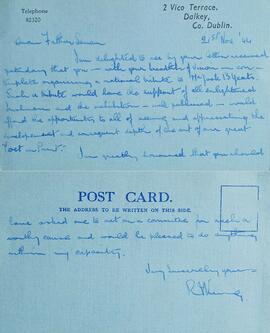 Telephone
82320
2 Vico Terrace,
Dalkey,
Co. Dublin.
21st Nov '44
Dear Father Senan
I am delighted to see in your letter received
yesterday that you — with your breadth of vision — con-
template organising a national tribute to Mr Jack B Yeats.
Such a tribute would have the support of all enlightened
Irishmen and the exhibition — will
afford the opportunity to all of seeing and appreciating the
development and consequent depths of the art of our great
Poet in Paint.
I am greatly honoured that you should
POST CARD.
THE ADDRESS TO BE WRITTEN ON THIS SIDE.
have asked me to act on a committee in such a
worthy cause and would be pleased to do anything
within my capacity.
Very Sincerely yours